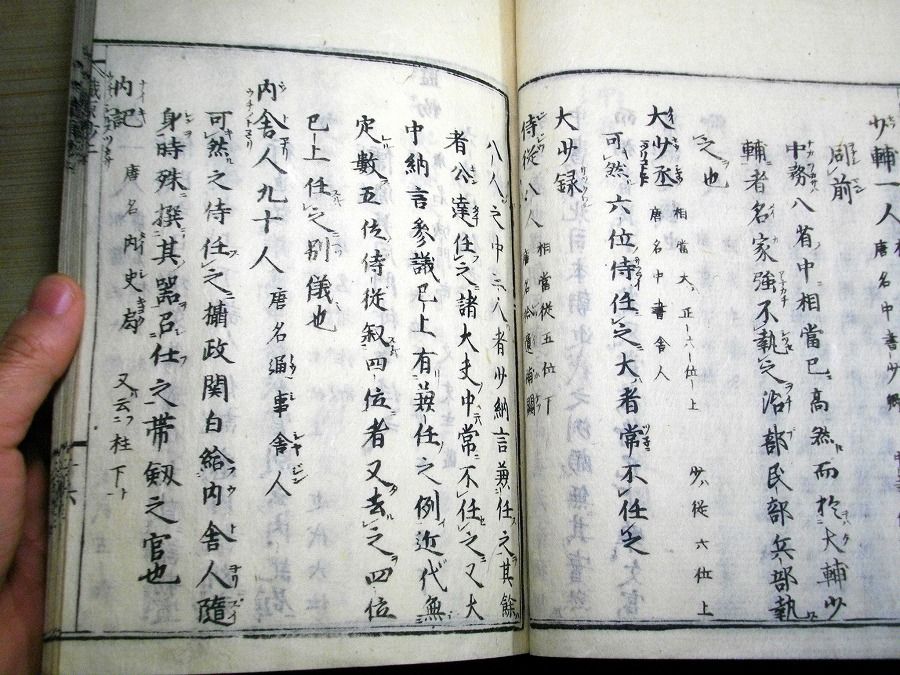 少輔一人 唐名中書少卿
剛前
中務八省中相當已高然而於大輔少
輔者名家強不執之治部民部兵部執
之也
大少丞 相當大正六位上 少從六位上 唐名中書舍人
可然六位侍任之大者常不任之
大少録
侍從八人 相當從五位下 唐名拾遺補闕
八人之中三人者少納言兼任之其餘
者公達任之諸大夫中常不任之又大
中納言參議已上有兼任之例近代無
定數五位侍從叙四位者又去之四位
已上任之別儀也
内舍人九十人 唐名通事舍人
可然之侍任之攝政関白給内舍人隨
身時殊撰其器召仕之帶劔之官也
内記 唐名内史局 又云柱下
職原抄上